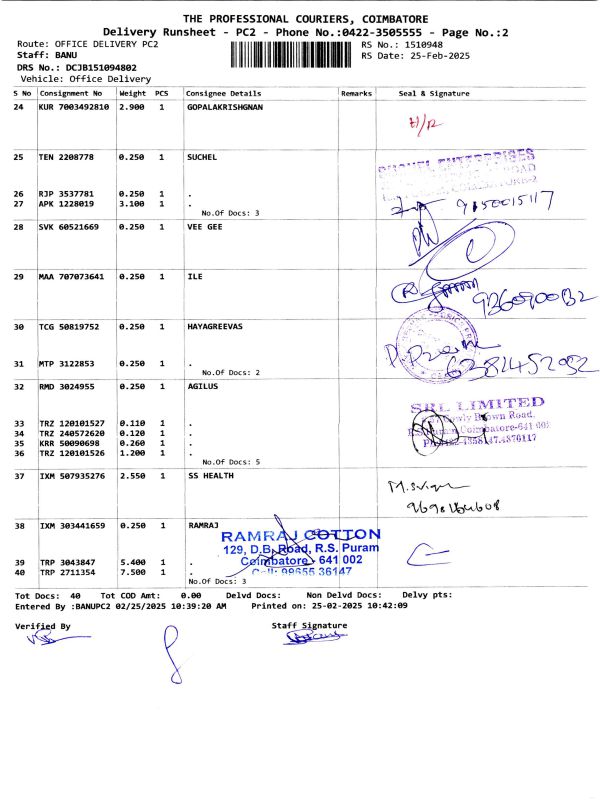 THE PROFESSIONAL COURIERS, COIMBATORE
Delivery Runsheet - PC2 - Phone No.:0422-3505555 - Page No.:2
Route: OFFICE DELIVERY PC2
RS No.: 1510948
Staff: BANU
RS Date: 25-Feb-2025
DRS No.: DCJB151094802
Vehicle: Office Delivery
S No Consignment No Weight PCS Consignee Details Remarks Seal & Signature
24 KUR 7003492810 2.900 1 GOPALAKRISHGNAN
25 TEN 2208778 0.250 1 SUCHEL
26 RJP 3537781 0.250 1 .
27 APK 1228019 3.100 1 .
9150015117
No.Of Docs: 3
28 SVK 60521669 0.250 1 VEE GEE
29 MAA 707073641 0.250 1 ILE
30 TCG 50819752 0.250 1 HAYAGREEVAS
31 MTP 3122853 0.250 1 .
6382452092
No.Of Docs: 2
32 RMD 3024955 0.250 1 AGILUS
SRL LIMITED
Brown Road,
33 TRZ 120101527 0.110 1 .
34 TRZ 240572620 0.120 1 .
Coimbatore-641 002
35 KRR 50090698 0.260 1 .
36 TRZ 120101526 1.200 1 .
No.Of Docs: 5
37 IXM 507935276 2.550 1 SS HEALTH
38 IXM 303441659 0.250 1 RAMRAJ
RAMRAJ COTTON
129, D.B. Road, R.S. Puram
39 TRP 3043847 5.400 1 .
Coimbatore - 641 002
40 TRP 2711354 7.500 1 .
Cell: 99655 36147
No.Of Docs: 3
Tot Docs: 40 Tot COD Amt: 0.00 Delvd Docs: Non Delvd Docs: Delvy pts:
Entered By :BANUPC2 02/25/2025 10:39:20 AM Printed on: 25-02-2025 10:42:09
Verified By
Staff Signature